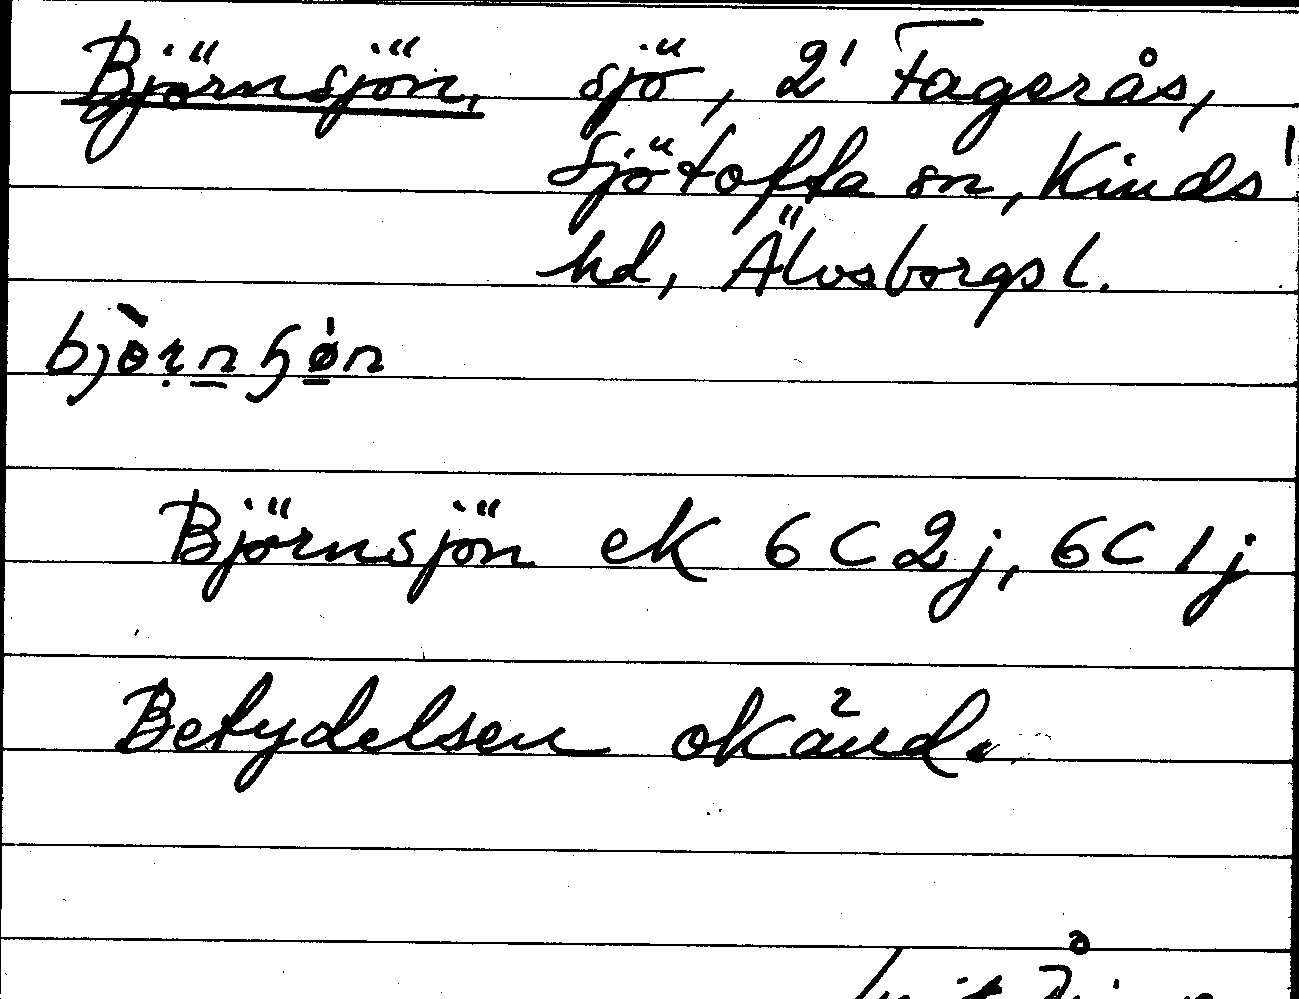 Björnsjön, sjö, 2' Fagerås,
Sjötofta sn, Kinds
hd, Älvsborgs l.
Björnsjön ek 6C2j, 6C1j
Betydelsen okänd.